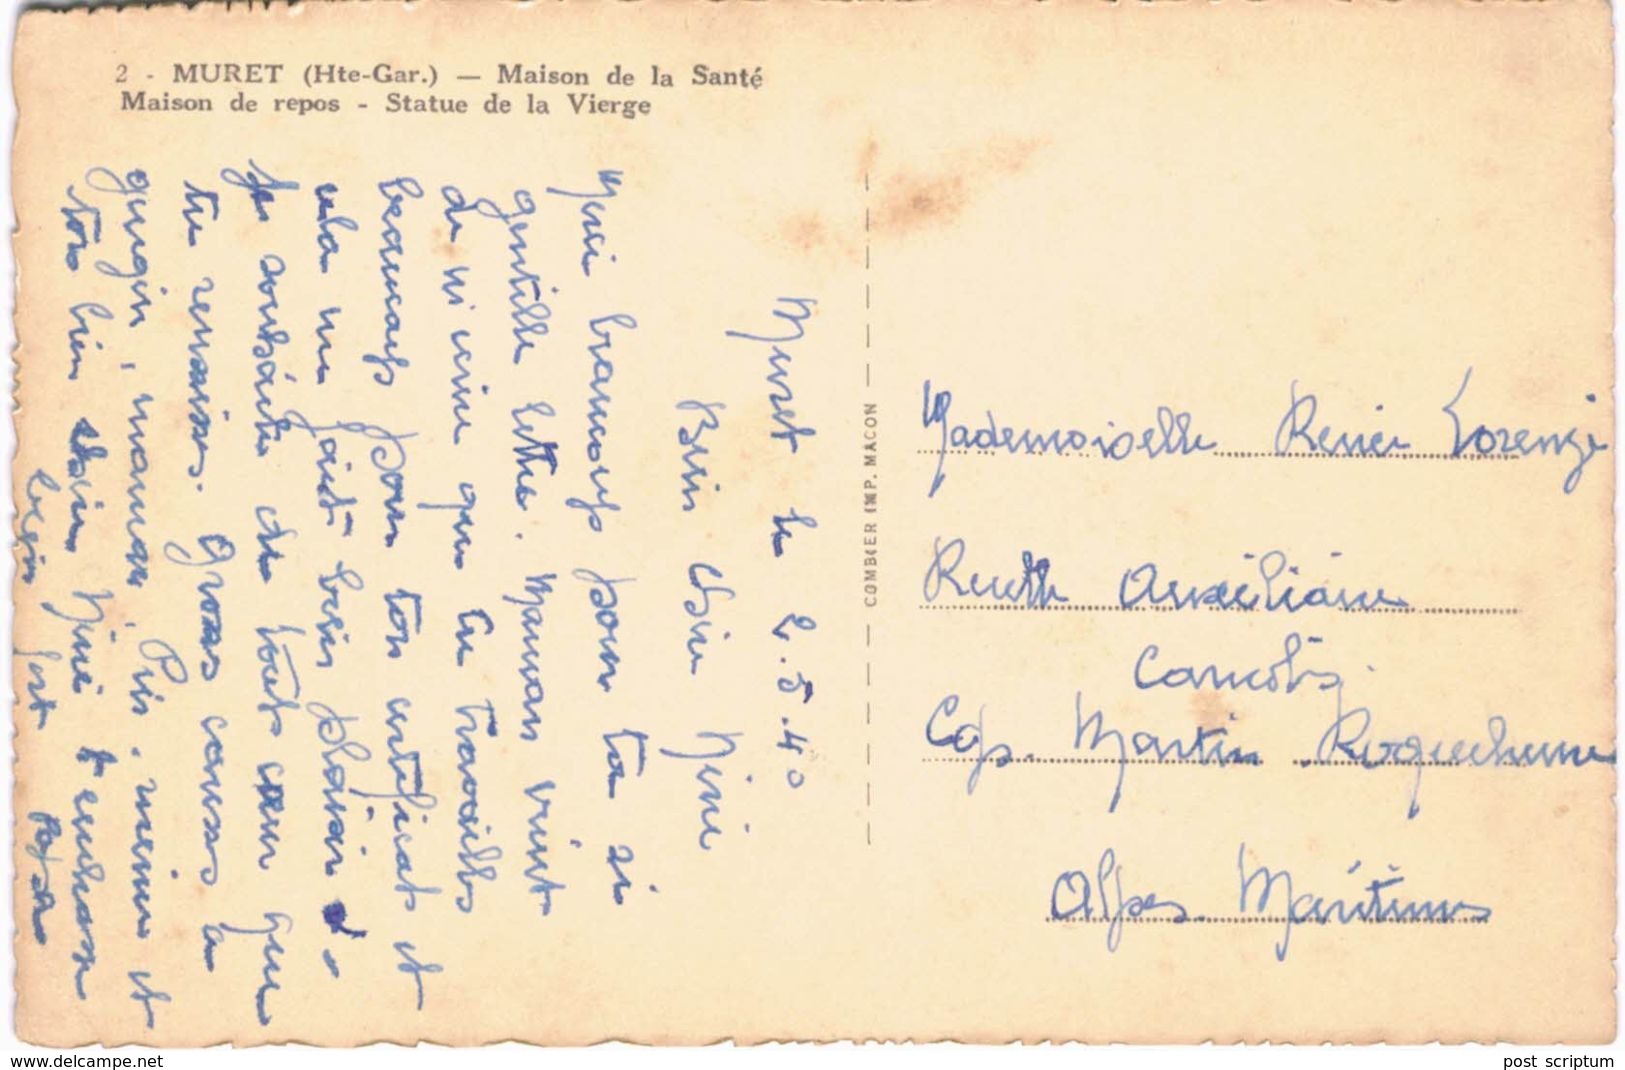 2 - MURET (Hte-Gar.) — Maison de la Santé
Maison de repos - Statue de la Vierge
Muret le 2.5.40
Bien chère Ninie
Merci beaucoup pour ta si
gentille lettre. Maman vient
de m'écrire que tu travailles
beaucoup pour ton certificat et
cela me fait bien plaisir
je souhaite de tout cœur que
tu réussisses. Gros caresses à
guiguin, maman, Piû, mémé et
toi bien chère Ninie t'embrasse
bien fort
COMBIER IMP. MACON
Mademoiselle Renée Lorenzi
Ruelle Auxiliaire
Carnolès
Cap. Martin Roquebrune
Alpes Maritimes
https://www.delcampe.net
post scriptum